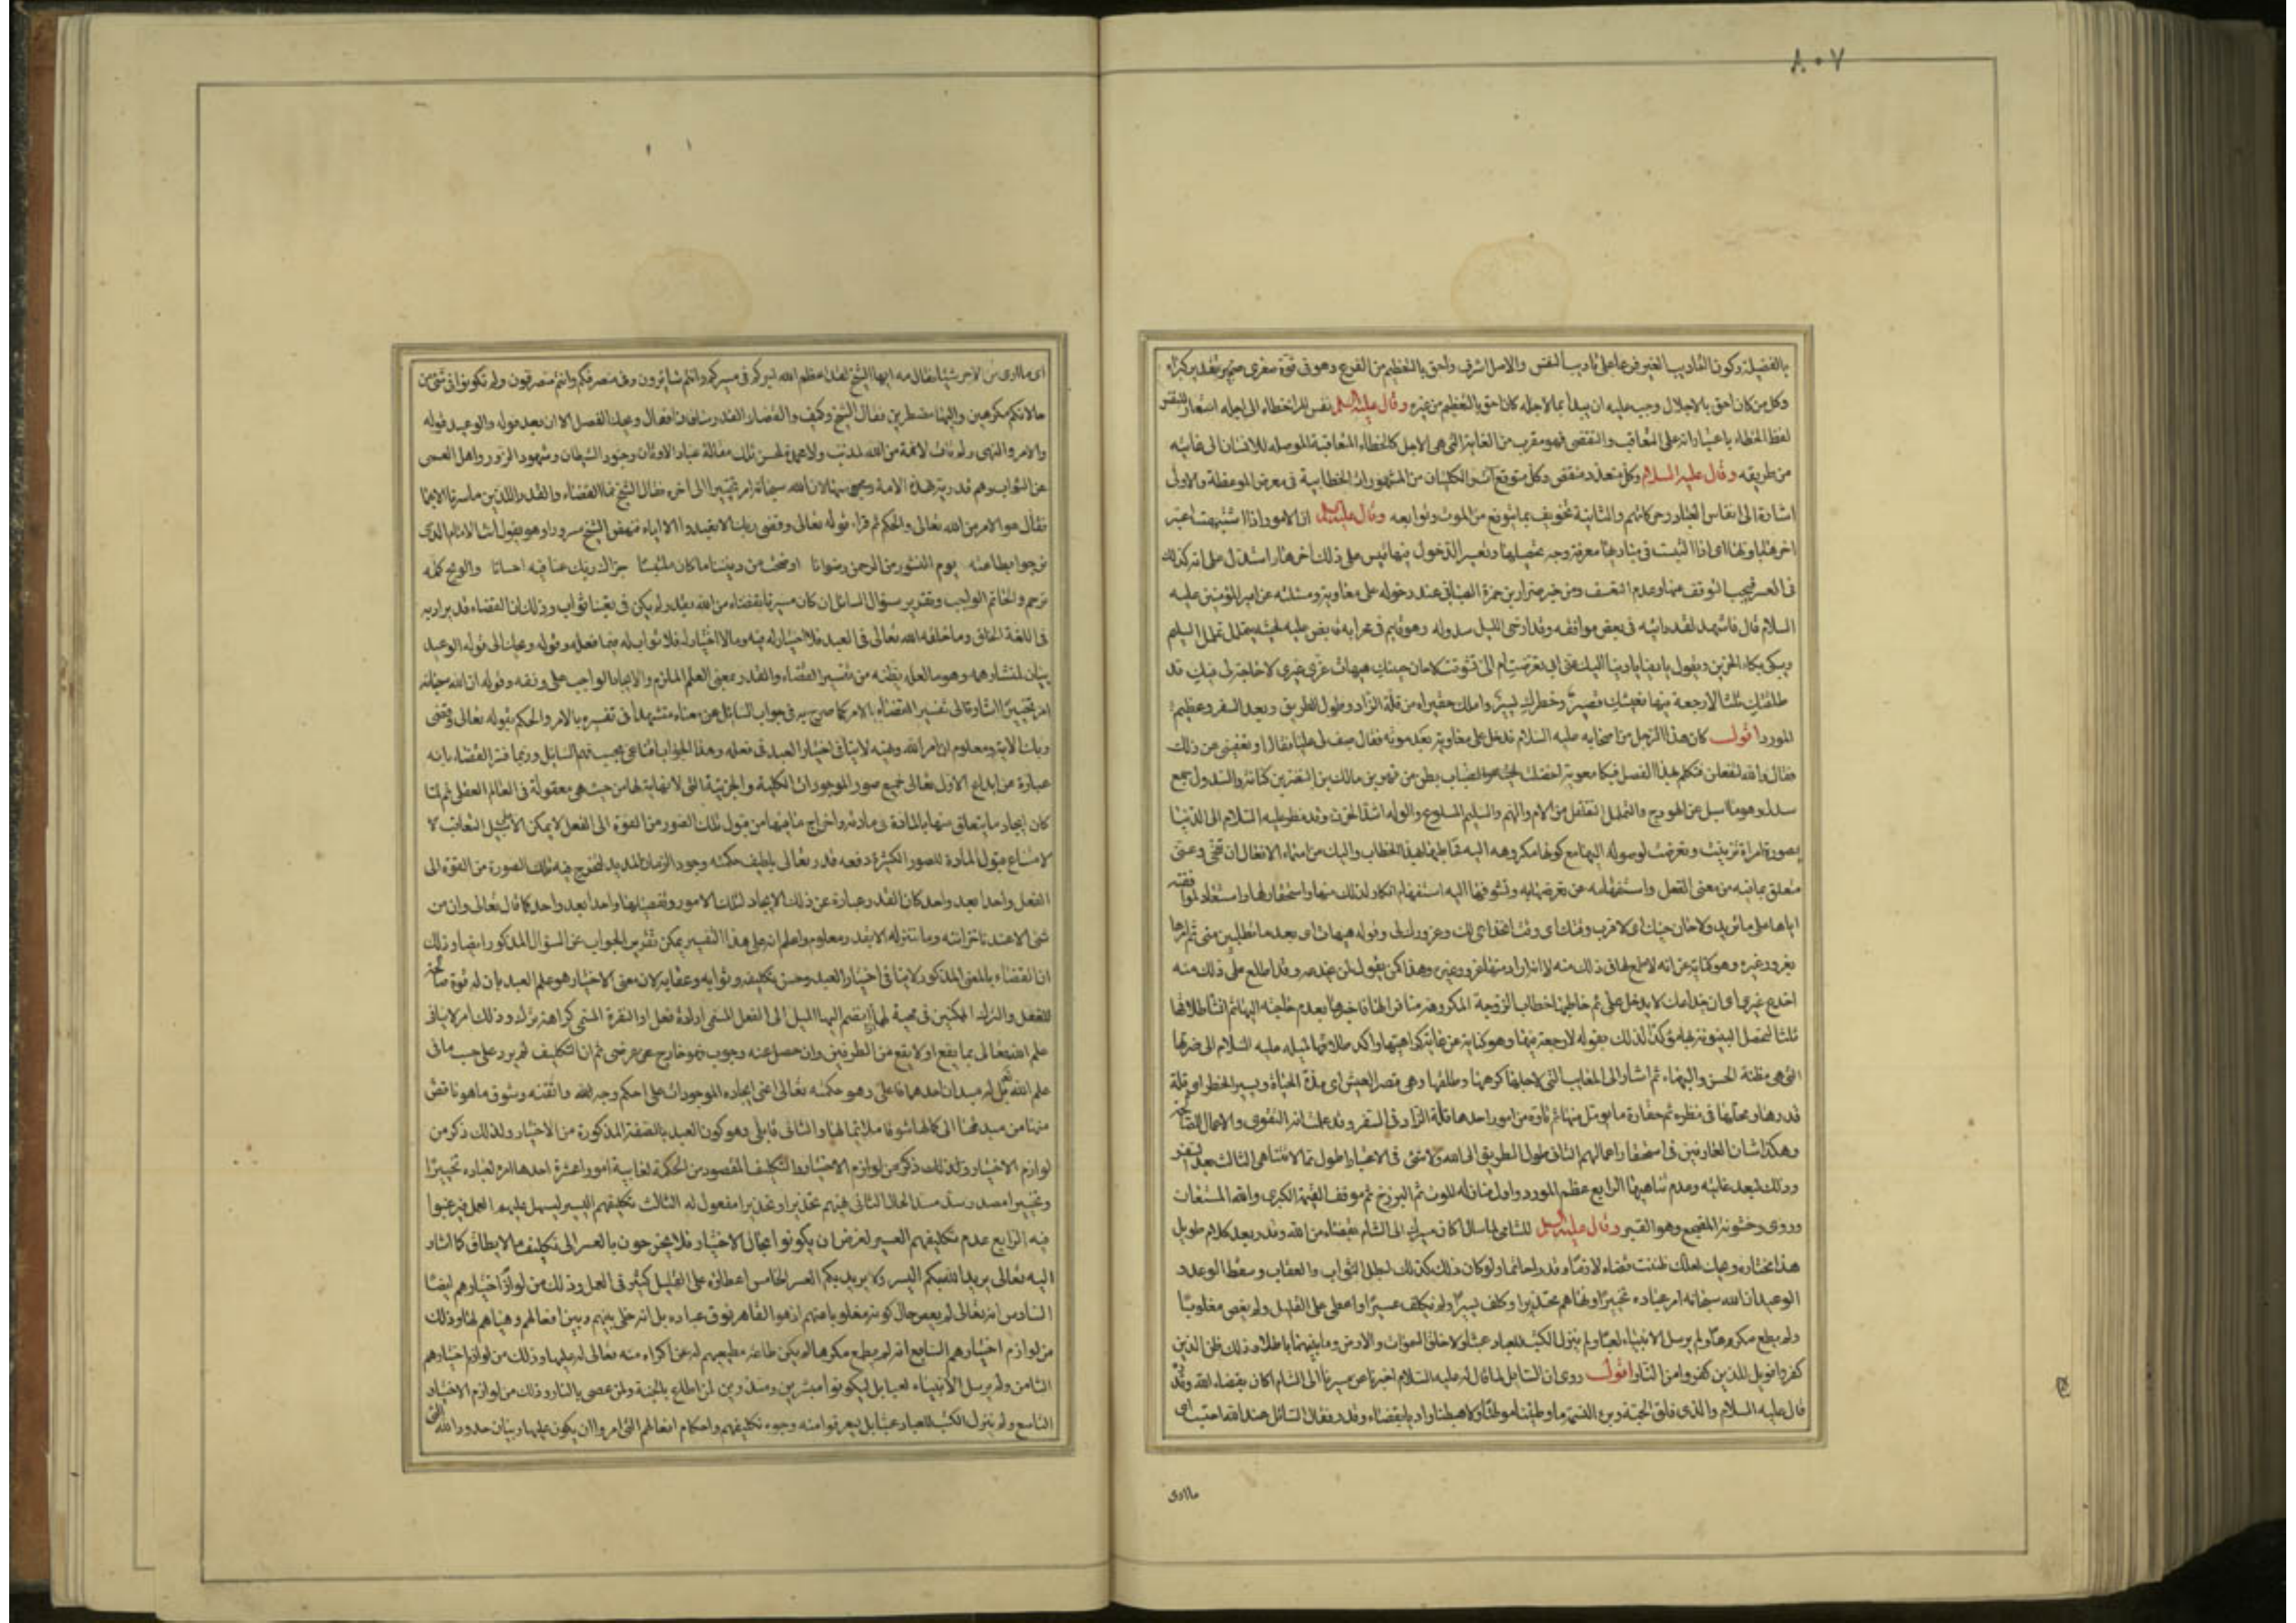 ٨٠٧
بالفضيلة وكون التأديب الغير فرعا على تأديب النفس والاصل اشرف واحق بالتعظيم من الفرع وهو في قوة صغرى ضمير تقدير كبراه
وكل من كان احق بالاجلال وجب عليه ان يبدأ بما لاجله كان احق بالتعظيم من غيره وقال عليه السلم نفس المرء خطاه الى اجله استعار للتنفس
لفظ الخطاء باعتبار انه على التعاقب والتقضي فهو مقرب من الغاية التي هي الاجل كالخطاء المتعاقبة الموصلة للانسان الى غايته
من طريقه وقال عليه السلام وكل متعدد منقض وكل متوقع آت والكليتان من المشهورات الخطابية في معرض الموعظة والاولى
اشارة الى انفاس العباد وحركاتهم والثانية تخويف بما يتوقع من الموت وتوابعه وقال عليه السلم ان الامور اذا اشتبهت اعتبر
اخرها باولها اى اذا التبست في مباديها معرفة وجه تحصيلها وتعسر الدخول فيها قيس على ذلك آخرها واستدل على انه كذلك
في العسر فيجب التوقف عنها وعدم التعسف ومن خبر ضرار بن حمزة الضبابى عند دخوله على معاوية ومسئلته عن امير المؤمنين عليه
السلام قال فاشهد لقد رايته في بعض مواقفه وقد ارخى الليل سدوله وهو قايم في محرابه قابض على لحيته يتململ تململ السليم
ويبكى بكاء الحزين ويقول يا دنيا يا دنيا اليك عنى ابى تعرضت ام الى تشوقت لا حان حينك هيهات غرى غيرى لا حاجة لى فيك قد
طلقتك ثلثا لا رجعة فيها فعيشك قصير وخطرك يسير واملك حقير اه من قلة الزاد وطول الطريق وبعد السفر وعظيم
المورد اقول كان هذا الرجل من اصحابه عليه السلام فدخل على معاوية بعد موته فقال صف لى عليا فقال او تعفينى عن ذلك
فقال والله لتفعلن فتكلم بهذا الفصل فبكا معوية حتى اخضلت لحيته والضباب بطن من فهر بن مالك بن النضر بن كنانة والسدول جمع
سدل وهو ما اسبل على الهودج والتململ التقلقل من الالم والهم والسليم الملسوع والوله اشد الحزن وقد نظر عليه السلام الى الدنيا
بصورة امراة تزينت وتعرضت لوصوله اليها مع كونها مكروهة اليه فخاطبها بهذا الخطاب واليك من اسماء الافعال اى تنحى وعنى
متعلق بما فيه من معنى الفعل واستفهامه عن تعرضها به وتشوقها اليه استفهام انكار لذلك منها واستحقار لها واستبعاد لموافقته
اياها على ما تريد ولا حان حينك اى لا قرب وقتك اى وقت انخداعى لك وغرورك لى وقوله هيهات اى بعد ما تطلبين منى ثم امرها
بغرور غيره وهو كناية عن انه لا مطمع لها في ذلك منه لا انه اراد منها غرور غيره وهذا كمن يقول لمن يخدعه وقد اطلع على ذلك منه
اخدع غيرى اى ان خداعك لا يدخل على ثم خاطبها خطاب الزوجة المكروهة منافرا لها فاخبرها بعدم حاجته اليها ثم انشا طلاقها
ثلثا لتحصل البينونة بها مؤكدا لذلك بقوله لا رجعة فيها وهو كناية عن غاية كراهيتها واكد طلاقها لميله عليه السلام الى ضرتها
التي هي مظنة الحسن والبهاء ثم اشار الى المعايب التي لاجلها كرهها وطلقها وهى قصر العيش اى مدة الحياة ويسير الخطر اى قلة
قدرها ومحلها في نظره ثم حقارة ما يؤمل منها ثم تأوه من امور احدها قلة الزاد في السفر وقد علمت انه التقوى والاعمال الصالحة
وهكذا شان العارفين في استحقار اعمالهم الثانى طول الطريق الى الله ولا شئ في الاعتبار اطول مما لا يتناهى الثالث بعد السفر
وذلك لبعد غايته وعدم تناهيها الرابع عظم المورد واول منازله الموت ثم البرزخ ثم موقف القيمة الكبرى والله المستعان
وروى وخشونة المضجع وهو القبر وقال عليه السلم للشامى لما سأله اكان مسيرك الى الشام بقضاء من الله وقدر بعد كلام طويل
هذا مختاره ويحك لعلك ظننت قضاء لازما وقدرا حاتما ولو كان ذلك كذلك لبطل الثواب والعقاب وسقط الوعد و
الوعيد ان الله سبحانه امر عباده تخييرا ونهاهم تحذيرا وكلف يسيرا ولم يكلف عسيرا واعطى على القليل ولم يعص مغلوبا
ولم يطع مكرها ولم يرسل الانبياء لعبا ولم ينزل الكتب للعباد عبثا ولا خلق السموات والارض وما بينهما باطلا وذلك ظن الذين
كفروا فويل للذين كفروا من النار اقول روى ان السايل لما قال له عليه السلام اخبرنا عن مسيرنا الى الشام اكان بقضاء الله وقدره
قال عليه السلام والذى فلق الحبة وبرئ النسمة ما وطئنا موطئا ولا هبطنا واديا الا بقضاء وقدر فقال السائل عند الله احتسب اى
ما ارى
اى ما ارى من الاجر شيئا فقال مه ايها الشيخ لقد اعظم الله اجركم في مسيركم وانتم سائرون وفى منصرفكم وانتم منصرفون ولم تكونوا في شئ من
حالاتكم مكرهين واليها مضطرين فقال الشيخ وكيف والقضاء والقدر ساقانا فقال ويحك الفصل الا ان بعد قوله والوعيد قوله
والامر والنهى ولم تأت لائمة من الله لمذنب ولا محمدة لمحسن تلك مقالة عباد الاوثان وجنود الشيطان وشهود الزور واهل العمى
عن الثواب وهم قدرية هذه الامة ومجوسها ان الله سبحانه امر تخييرا الى اخره فقال الشيخ فما القضاء والقدر اللذين ما سرنا الا بهما
فقال هو الامر من الله تعالى والحكم ثم قراء قوله تعالى وقضى ربك الا تعبدوا الا اياه فنهض الشيخ مسرورا وهو يقول انت الامام الذى
نرجوا بطاعته يوم النشور من الرحمن رضوانا اوضحت من ديننا ما كان ملتبسا جزاك ربك عنا فيه احسانا والويح كلمة
ترحم والحاتم الواجب وتقرير سؤال السائل ان كان مسيرنا بقضاء من الله بقدر لم يكن في تعبنا ثواب وذلك ان القضاء قد يراد به
في اللغة الخلق وما خلقه الله تعالى في العبد فلا اختيار له فيه وما لا اختيار له فلا ثواب له فيما فعله وقوله ويحك الى قوله الوعيد
بيان لمنشأ وهمه وهو ما لعله يظنه من تفسير القضاء والقدر بمعنى العلم الملزم والايجاد الواجب على وفقه وقوله ان الله سبحانه
امر تخييرا اشارة الى تفسير القضاء بالامر كما صرح به في جواب السائل عن معناه مستشهدا في تفسيره بالامر والحكم بقوله تعالى وقضى
ربك الاية ومعلوم ان امر الله ونهيه لا ينافى اختيار العبد في فعله وهذا الجواب اقناعى بحسب فهم السايل وربما فسر القضاء بانه
عبارة عن ابداع الاول تعالى جميع صور الموجودات الكلية والجزئية التي لا نهاية لها من حيث هى معقولة في العالم العقلى ثم لما
كان ايجاد ما يتعلق منها بالمادة في مادته واخراج ما فيها من قبول تلك الصور من القوة الى الفعل لا يمكن الا على سبيل التعاقب لا
متناع قبول المادة للصور الكثيرة دفعة قدر تعالى بلطيف حكمته وجود الزمان المديد لتخرج فيه تلك الصورة من القوة الى
الفعل واحدا بعد واحد كان القدر عبارة عن ذلك الايجاد لتلك الامور وتفصيلها واحدا بعد واحد كما قال تعالى وان من
شئ الا عندنا خزائنه وما ننزله الا بقدر معلوم واعلم ان على هذا التفسير يمكن تقرير الجواب عن السؤال المذكور ايضا وذلك
ان القضاء بالمعنى المذكور لا ينافى اختيار العبد وحسن تكليفه وثوابه وعقابه لان معنى الاختيار هو علم العبد بان له قوة صالحة
للفعل والترك الممكنين في محبة لهما ينضم اليها الميل الى الفعل المسمى ارادة فعل او النفرة المسمى كراهة ترك وذلك امر لا ينافى
علم الله تعالى بما يقع او لا يقع من الطرفين وان حصل عنه وجوب فهو خارجى عرضى ثم ان التكليف لم يرد على حسب ما في
علم الله بل له مبدءان احدهما فاعلى وهو حكمته تعالى اعنى ايجاده الموجودات على احكم وجه لله واتقنه وسوق ما هو ناقص
منها من مبدئها الى كمالها سوقا ملائما لها والثانى قابلى وهو كون العبد بالصفة المذكورة من الاختيار ولذلك ذكر من
لوازم الاختيار ولذلك ذكر من لوازم الاختيار والتكليف المقصود من الحكمة لغايتة امورا عشرة احدها امره لعباده تخييرا
وتخييرا مصدر سد مسد الحال الثانى نهيهم تحذيرا وتحذيرا مفعول له الثالث تكليفهم اليسير ليسهل عليهم العمل فيرغبوا
فيه الرابع عدم تكليفهم العسير لغرض ان يكونوا بحال الاختيار فلا يخرجون بالعسر الى تكليف ما لا يطاق كما اشار
اليه تعالى يريد الله بكم اليسر ولا يريد بكم العسر الخامس اعطاؤه على القليل كثير في العمل وذلك من لوازم اختيارهم ايضا
السادس انه تعالى لم يعص حال كونه مغلوبا منهم اذ هو القاهر فوق عباده بل انه خلى بينهم وبين افعالهم وهياهم لها وذلك
من لوازم اختيارهم السابع انه لم يطع مكرها لم يكن طاعة مطيعهم له عن اكراه منه تعالى له عليها وذلك من لوازم اختيارهم
الثامن ولم يرسل الانبياء لعبا بل ليكونوا مبشرين ومنذرين لمن اطاع بالجنة ولمن عصى بالنار وذلك من لوازم الاختيار
التاسع ولم ينزل الكتب للعباد عبثا بل ليعرفوا منه وجوه تكليفهم واحكام افعالهم التي امروا ان يكون عليها وبيان حدود الله التي